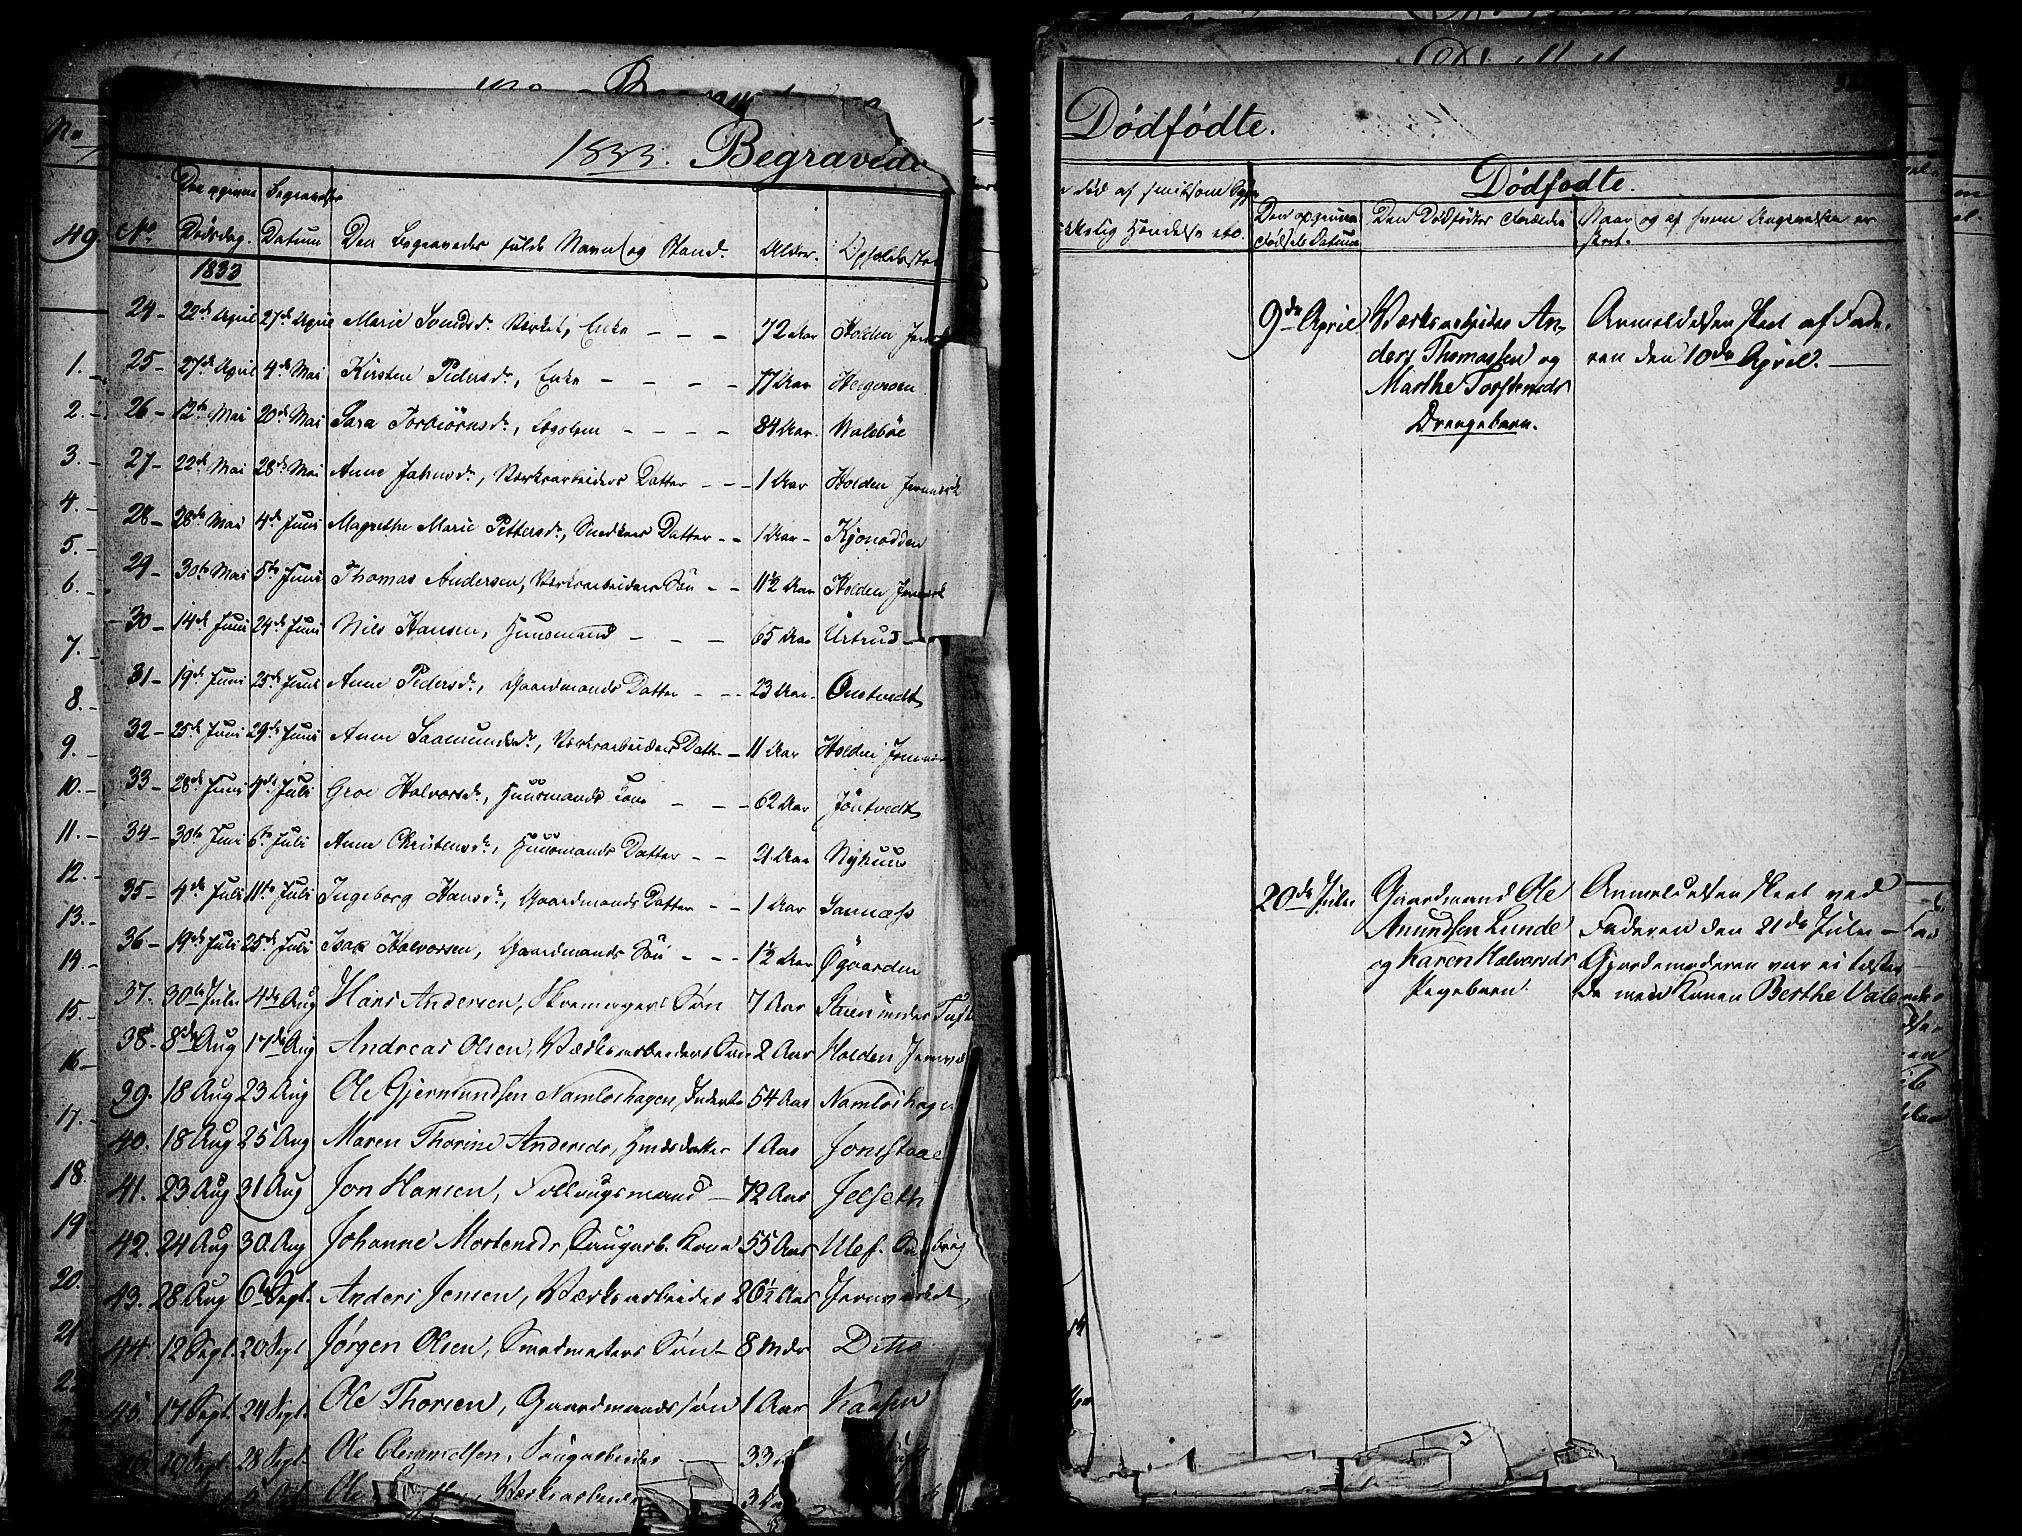 1833. Begravede
No. Den opgivne Dødsdag. Begravelses Datum Den Begravedes fulde Navn og Stand. Alder. Opholdsste
1833
24- 22de April 27de April Marie Svendsdr. Værket, Enke - - - 72 Aar Holden Jernv
25- 27de April 4de Mai Kirsten Pedersdr., Enke - - - - 77 Aar Heigeroen
26- 12te Mai 20de Mai Sara Torbiörnsdr., Logslem - - - - 84 Aar. Valeböe
27- 22de Mai 28de Mai Anne Jahnsdr., Værksarbeiders Datter - - - 1 Aar Holden Jernværk
28- 28de Mai 4de Juni Magrethe Marie Pettersdr., Snedkers Datter - - 1 Aar - Kjonodden
29- 30te Mai 5te Juni Thomas Andersen, Værksarbeiders Sön - - 11½ Aar Holden Jernværk
30- 14de Juni 24de Juni Nils Hansen, Huusmand - - - 65 Aar Urtrud -
31- 19de Juni 25de Juni Anne Pedersdr., Gaardmands Datter - - - 23 Aar. Onstvedt
32- 25de Juni 29de Juni Anne Saamundsdr., Værksarbeiders Datter - 11 Aar Holden Jernvær
33- 28de Juni 4de Juli Groe Halvorsdr., Huusmands Kone - - - 62 Aar Jöntvedt
34- 30te Juni 6te Juli Anne Christensdr., Huusmands Datter - - 21 Aar Nyhuus
35- 4de Juli 11te Juli Ingeborg Hansdr., Gaardmands Datter - - 1 Aar Sannæss
36- 19de Juli 25de Juli Isak Halvorsen, Gaardmands Sön - - - 1½ Aar Øgaarden
37. 30te Julii 4de Aug Hans Andersen, Skomagers Søn 7 Aar Steen under Tufte
38. 8de Aug 17de Aug Andreas Olsen, Værksarbeiders Søn 2 Aar Holden Jernvæ
39. 18 Aug 23 Aug Ole Gjermundsen Namløshagen, Inderste 54 Aar Namløshage
40. 18 Aug 25 Aug Maren Thorine Andersdr, Huusdatter 1 Aar Jonstaae
41. 23 Aug 31 Aug Jon Hansen, Follaugsmand - 72 Aar Jelseth
42. 24 Aug 30. Aug Johanne Mortensdr, Saugarb. Kone 55 Aar Ulef. Saugbrug
43. 28 Aug 6te Sept. Anders Jensen, Værksarbeider 26½ Aar Jernværket
44. 12 Sept. 20 Sept Jørgen Olsen, Smedmesters Søn - 8 Mdr Ditto
45. 17 Sept. 24 Sept. Ole Thorsen, Gaardmandssøn 1 Aar Kaasen
46. 20 Sept. 28 Sept. Ole Clemmetsen, Saugarbeider - 33
5 Oct Ole Værksarbeider 3
49.
No
1.
2.
3.
4.
5.
6.
7.
8.
9.
10.
11.
12.
13.
14.
15.
16
17.
18.
19.
20.
21
2.
Dødfødte.
død af smitsom Syge
kkelig Hændelse etc.
Dødfødte.
Den opgivne Fødsels Datum
Den Dødfødtes Forældre
Naar og af hvem Angivelsen er
skeet.
9de April
Værksarbeider An-
ders Thomassen og
Marthe Torstensdr
Drengebarn.
Anmeldelsen skeet af Fade-
ren den 10de April.
20de Julii
Gaardmand Ole
Anundsen Lunde
og Karen Halvorsdr
Pigebarn.
Anmeldelsen skeet ved
Faderen den 21de Julii -
Gjordemoderen var ei tilste-
de men Konen Berthe Vale